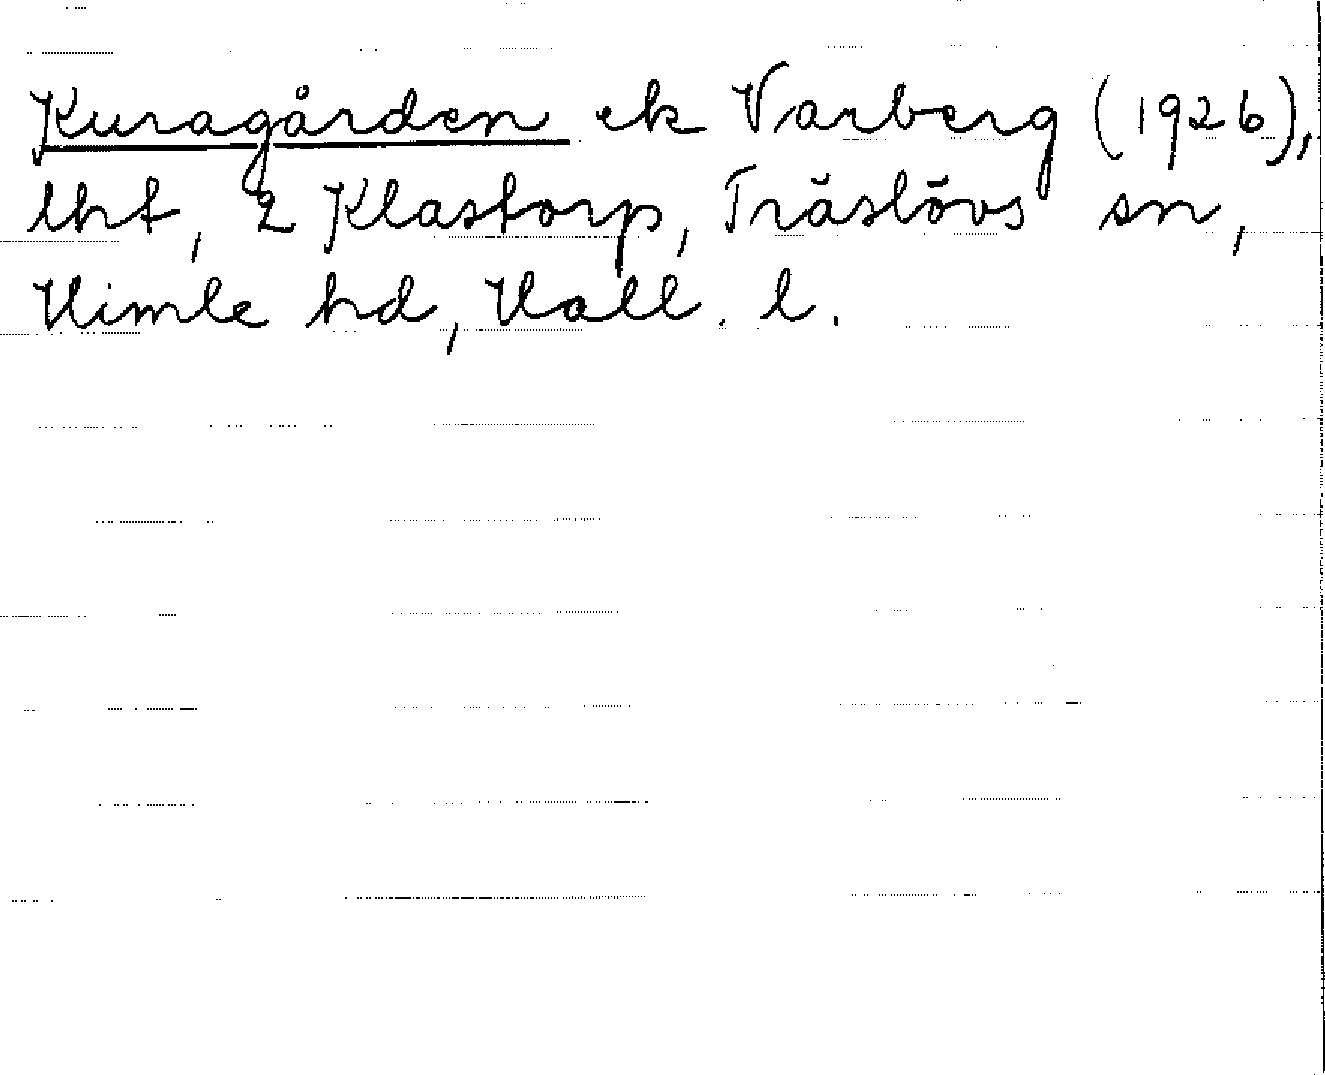 Kuragården ek Varberg (1926),
lht, 2 Klastorp, Träslövs sn,
Himle hd, Hall. l.